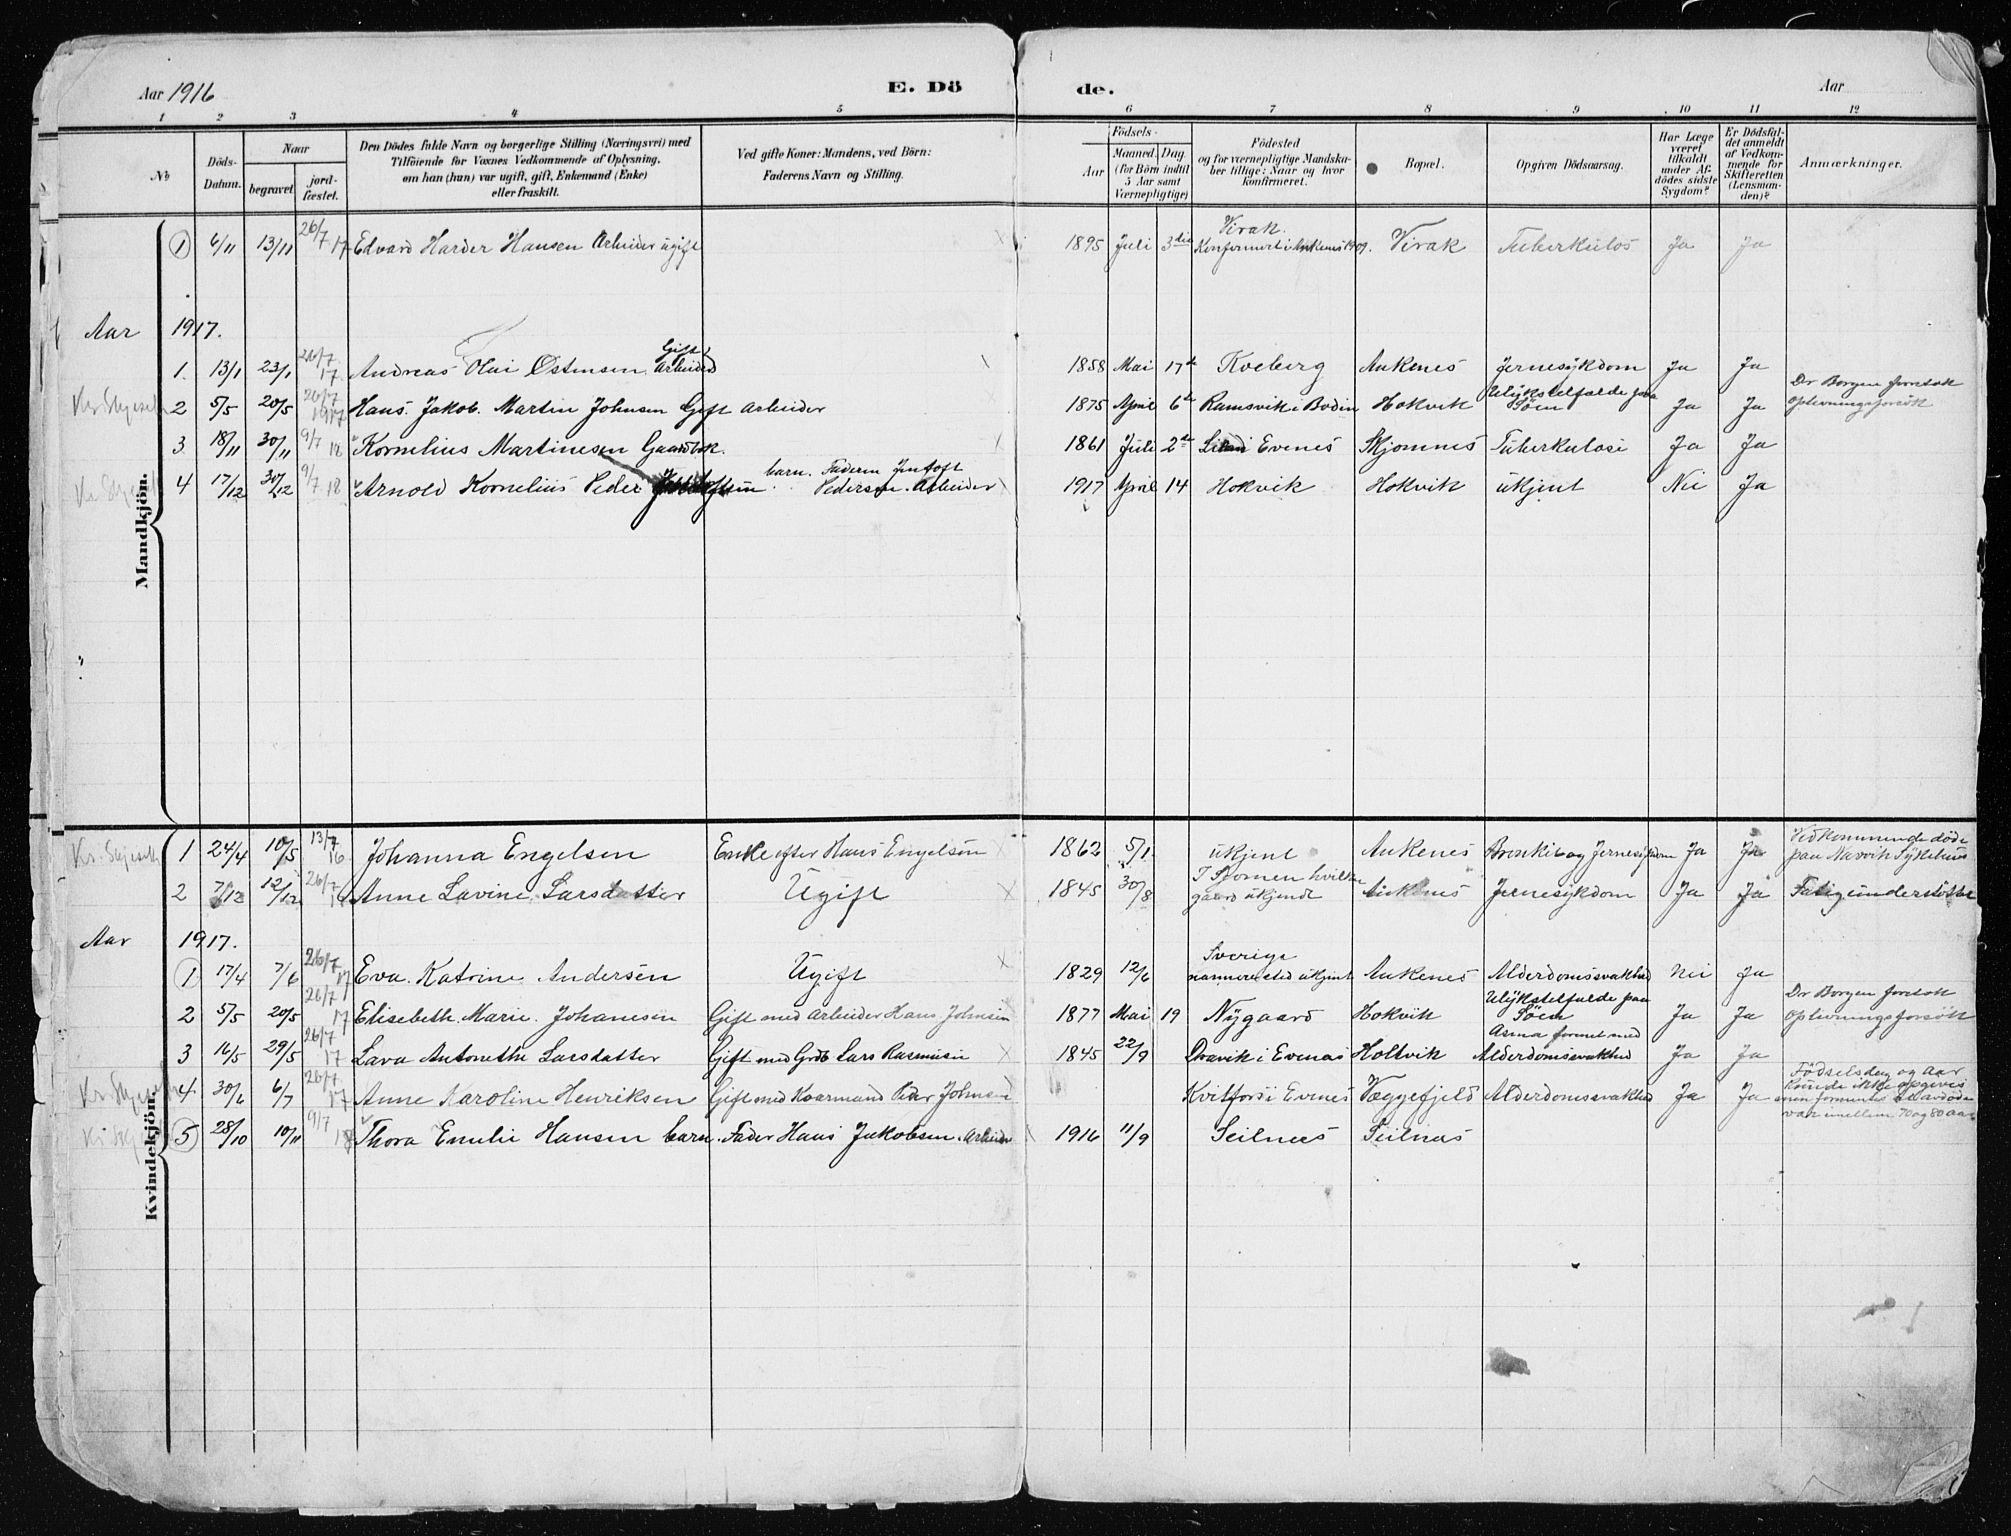 Aar 1916 E. Dö de. Aar
1 2 3 4 5 6 7 8 9 10 11 12
No Döds-Datum. Naar begravet. jord-fæstet. Den Dödes fulde Navn og borgerlige Stilling (Næringsvei) med Tilföiende for Voxnes Vedkommende af Oplysning, om han (hun) var ugift, gift, Enkemand (Enke) eller fraskilt. Ved gifte Koner: Mandens, ved Börn: Faderens Navn og Stilling. Födsels- Aar Maaned. Dag. (for Börn indtil 5 Aar samt Værnepligtige) Födested og for værnepligtige Mandskaber tillige: Naar og hvor konfirmeret. Bopæl. Opgiven Dödsaarsag. Har Læge været tilkaldt under Afdödes sidste Sygdom? Er Dödsfaldet anmeldt af Vedkommende for Skifteretten (Lensmanden)? Anmærkninger.
Mandkjön.
1 6/11 13/11 26/7 17 Edvard Harder Hansen Arbeider ugift 1895 Juli 3die Virak. Konfirmert i Ankenes 1909. Virak Tuberkulos Ja Ja
Aar 1917.
1. 13/1 23/1 26/7 17. Andreas Olai Østensen Gift Arbeider 1858 Mai 17de Kveberg Ankenes Jernesykdom Ja Ja
2 5/5 20/5 26/7 1917 Hans. Jakob. Martin Johnsen Gift Arbeider 1875 April 6te Ramsvik i Bodin Hokvik Ulykstelfælde paa Söen Ja Ja Dr Borgen foretok Oplivningsforsök
3 18/11 30/11 9/7 18 Kornelius Martinesen Gaardbrk. 1861 Juli 2de Evenes Skjomnes Tuberkulose Ja Ja
4 17/12 30/12 9/7 18 Arnold Kornelius Peder barn. Faderen Jentoft Pedersen. Arbeider 1917 April 14 Hokvik Hokvik ukjent Nei Ja
Kvindekjön.
1 24/4 10/5 13/7 16 Johanna Engelsen Enke efter Hans Engelsen 1862 5/1. ukjent Ankenes Bronkit og Jernesykdom Ja Ja Vedkommende döde paa Narvik Sykehus
2 7/12 12/12 26/7 17 Anne Lavine Larsdatter Ugift 1845 30/8 I Skomen hvilken gaard ukjende Ankenes Jernesykdom Ja Ja Fatigunderstöttet
Aar 1917.
1 17/4 7/6 26/7 17 Eva. Katrine Andersen Ugift 1829 12/6 Sverige nærmere sted ukjent Ankenes Alderdomssvakhed Nei Ja
2 5/5 20/5 26/7 17 Elisebeth. Marie. Johansen Gift med Arbeider Hans Johnsen 1877 Mai 19 Nygaard Hokvik Ulykstelfælde paa Söen Ja Ja Dr Borgen foretok Oplivningsforsök
3 16/5 29/5 26/7 17 Lava Antonette Larsdatter Gift med Grdb Lars Rasmusen 1845 22/9 Dravik i Evenes Holtvik Asma forenet med Alderdomssvakhed Ja Ja
4 30/6 6/7 26/7 17 Anne Karoline Henriksen Gift med Kaarmand Peder Johnsen Kvitfors i Evenes Væggefjeld Alderdomssvakhed Ja Ja Födselsdag og Aar kunde ikke opgives men formenes at avdöde var imellem 70 og 80 aar
5 28/10 10/11 9/7 18 Thora Emelie Hansen barn. Fader Hans Jakobsen. Arbeider 1916 11/9 Seilnes Seilnes